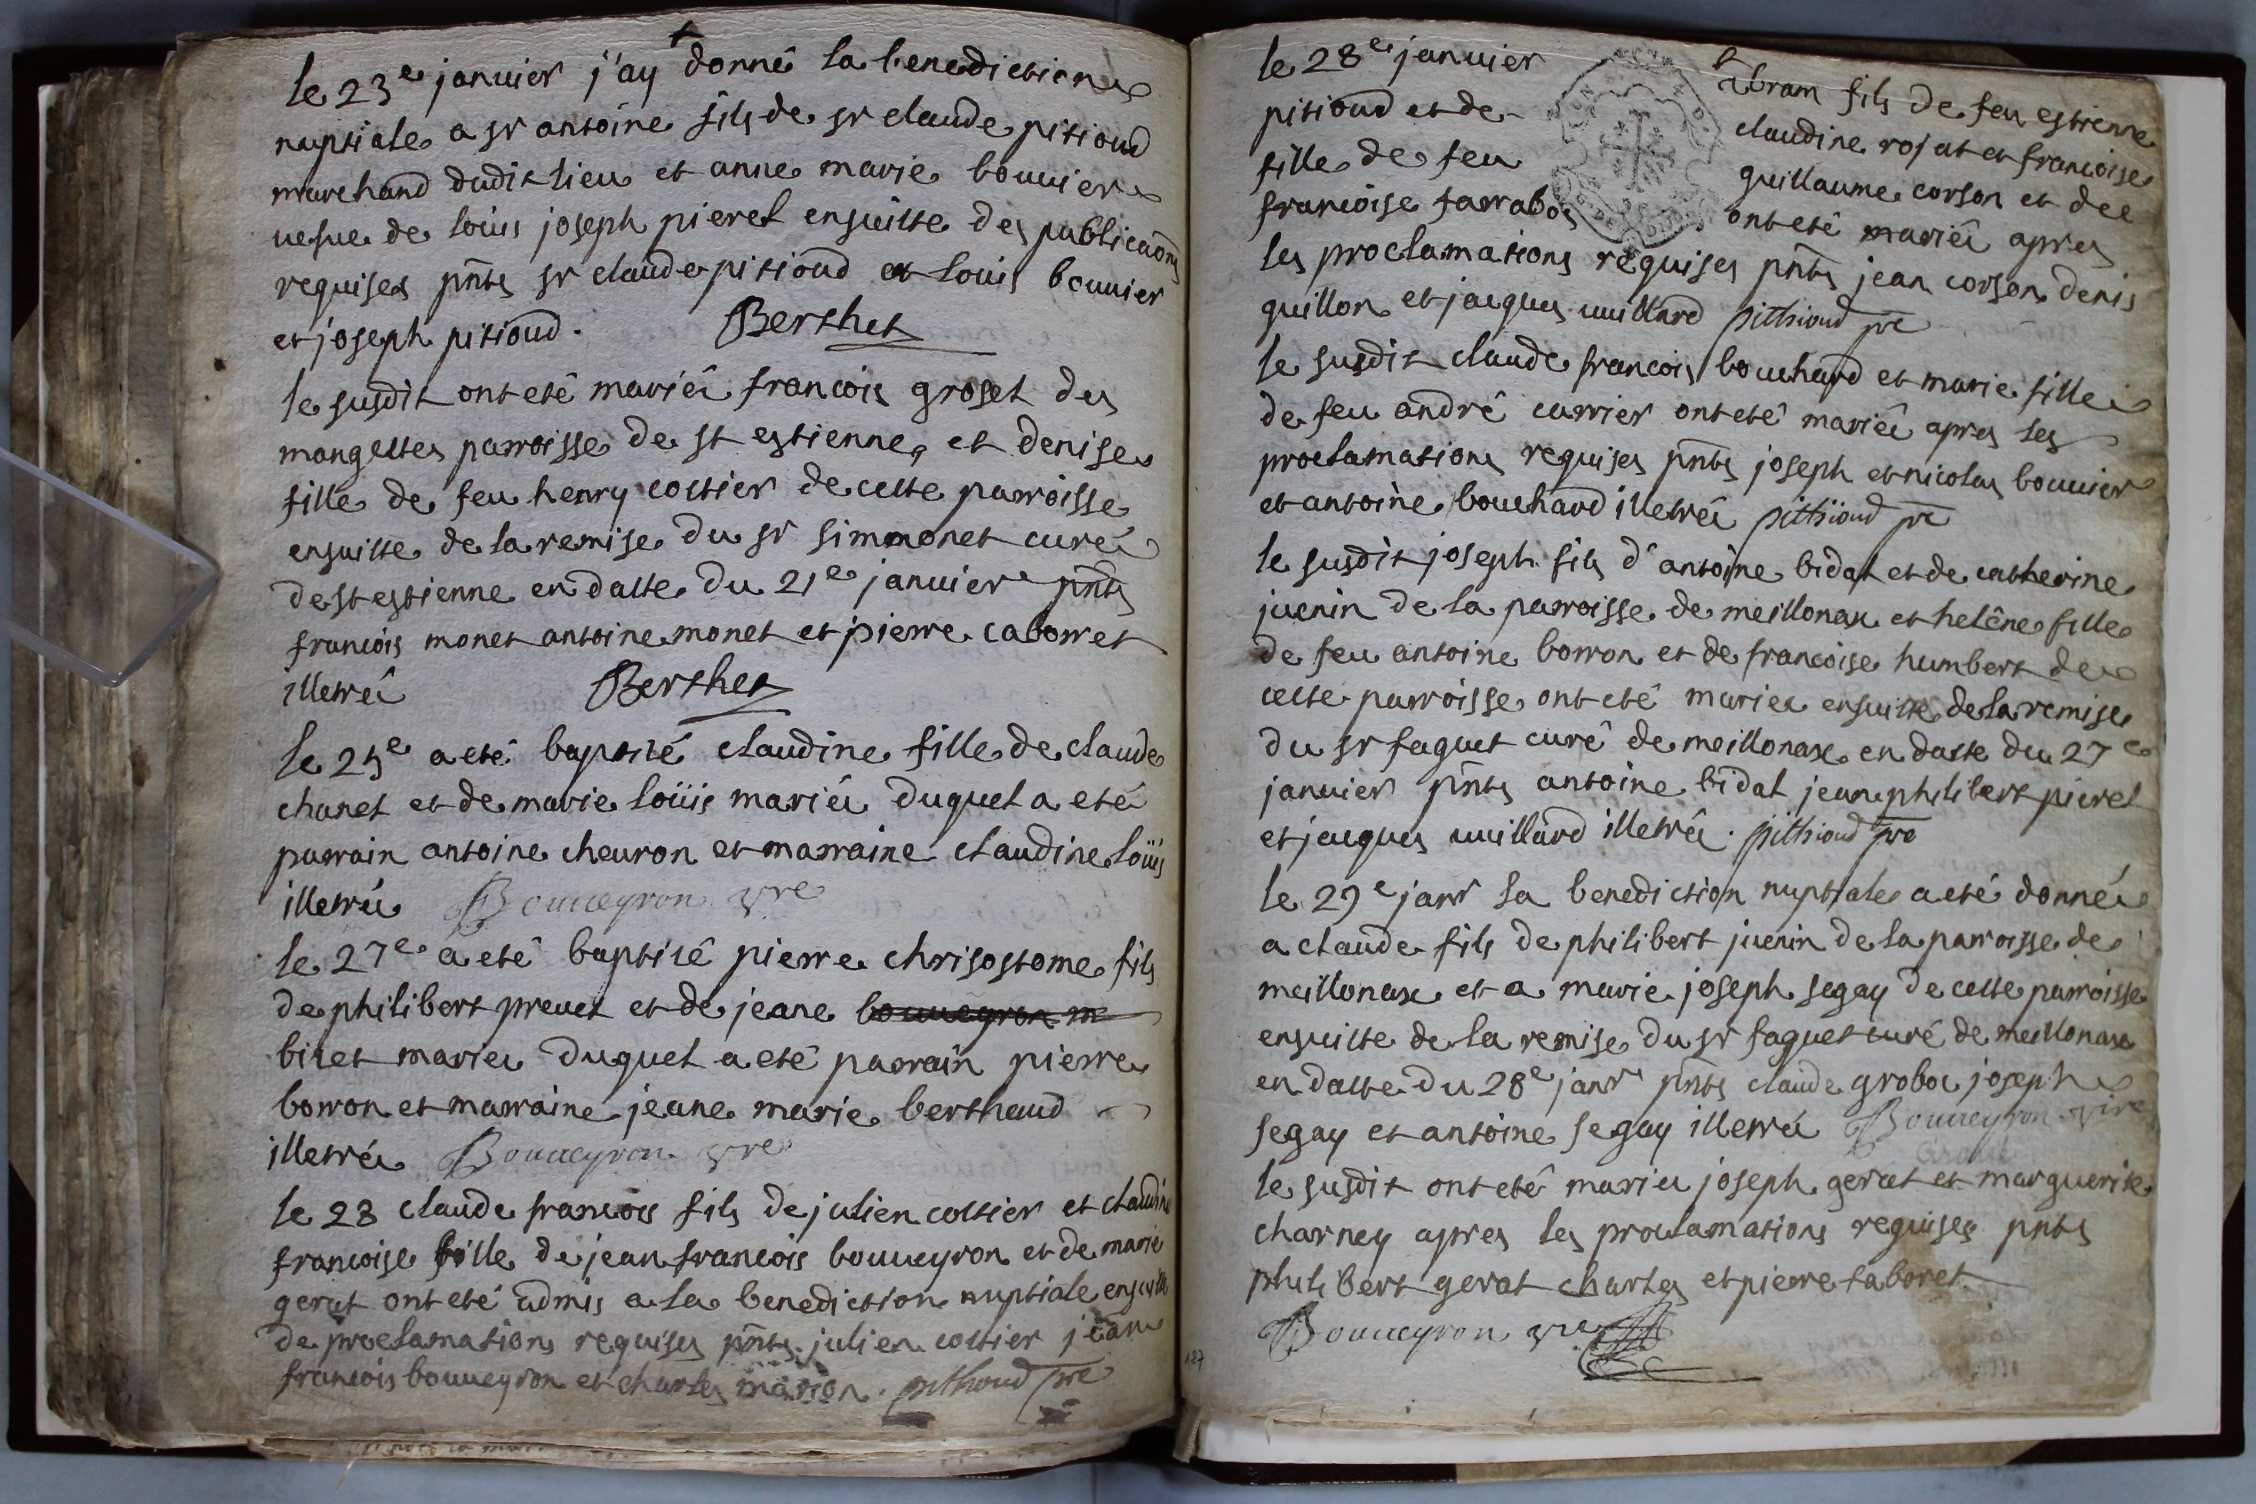 le 23e janvier j'ay donné la benediction
nuptiale a sr antoine fils de sr claude pitioud
marchand dudit lieu et anne marie bouvier
vesve de loüis joseph pierel ensuitte des publicaons
requises pnts sr claude pitioud et louis bouvier
et joseph pitioud. Berthet
le susdit ont eté mariéz françois groset des
mangettes parroisse de st estienne, et denise
fille de feu henry cottier de cette parroisse
ensuitte de la remise du sr simmonet curé
de st estienne en datte du 21e janvier pnts
françois monet antoine monet et pierre caborret
illetréz Berthet
le 25e a eté baptisé claudine fille de claude
chanet et de marie loüis mariéz duquel a eté
parrain antoine chevron et marraine claudine loüis
illetréz Bouveyron vre
le 27e a eté baptisé pierre chrisostome fils
de philibert prevet et de jeane bouveyron m
biset mariez duquel a eté parrain pierre
borron et marraine jeane marie berthaud
illetréz Bouveyron vre
le 28 claude françois fils de julien cottier et claudine
françoise fille de jean françois bouveyron et de marie
gerat ont eté admis a la benediction nuptiale ensuitte
de proclamations requises pnts julien cottier jean
françois bouveyron et charles marion. pithioud pre
187
le 28e janvier abram fils de feu estienne
pitioud et de claudine rosat et françoise
fille de feu guillaume corson et de
françoise farraboz ont eté mariéz apres
les proclamations requises pnts jean corson denis
guillon et jacques vuillard pithioud pre
le susdit claude françois bouchard et marie fille
de feu andré currier ont eté mariéz apres les
proclamations requises pnts joseph et nicolas bouvier
et antoine bouchard illetréz pithioud pre
le susdit joseph fils d'antoine bidal et de catherine
juenin de la parroisse de meillonax et heléne fille
de feu antoine borron et de françoise humbert de
cette parroisse ont eté mariez ensuitte de la remise
du sr faguet curé de meillonax en datte du 27e
janvier pnts antoine bidal jean philibert pierel
et jacques vuillard illetréz. pithioud pre
le 29e janr la benediction nuptiale a eté donnéé
a claude fils de philibert juenin de la parroisse de
meillonax et a marie joseph segay de cette parroisse
ensuitte de la remise du sr faguet curé de meillonax
en datte du 28e janr pnts claude groboz joseph
segay et antoine segay illetréz Bouveyron vire
le susdit ont eté mariez joseph gerat et marguerite
charney apres les proclamations requises pnts
philibert gerat charles et pierre taboret
Bouveyron vre